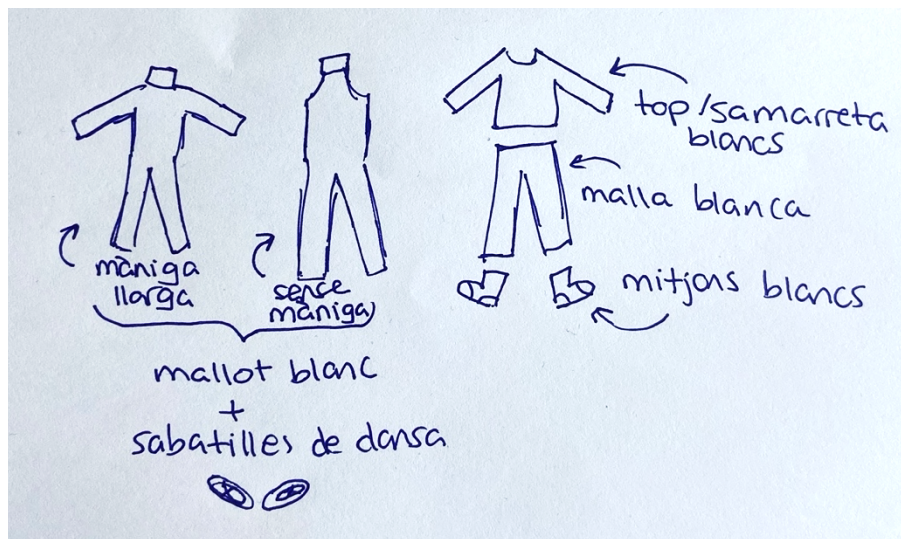 màniga
llarga
sense
màniga
mallot blanc
+
sabatilles de dansa
top/samarreta
blancs
malla blanca
mitjons blancs